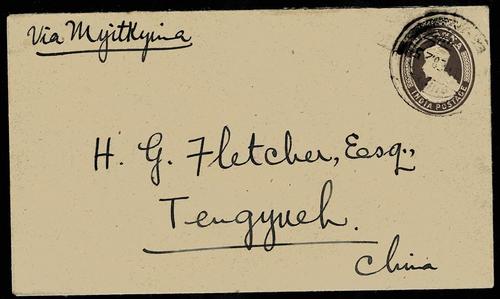 Via Myitkyina
ONE ANNA
INDIA POSTAGE
H. G. Fletcher, Esq.,
Tengyueh.
China